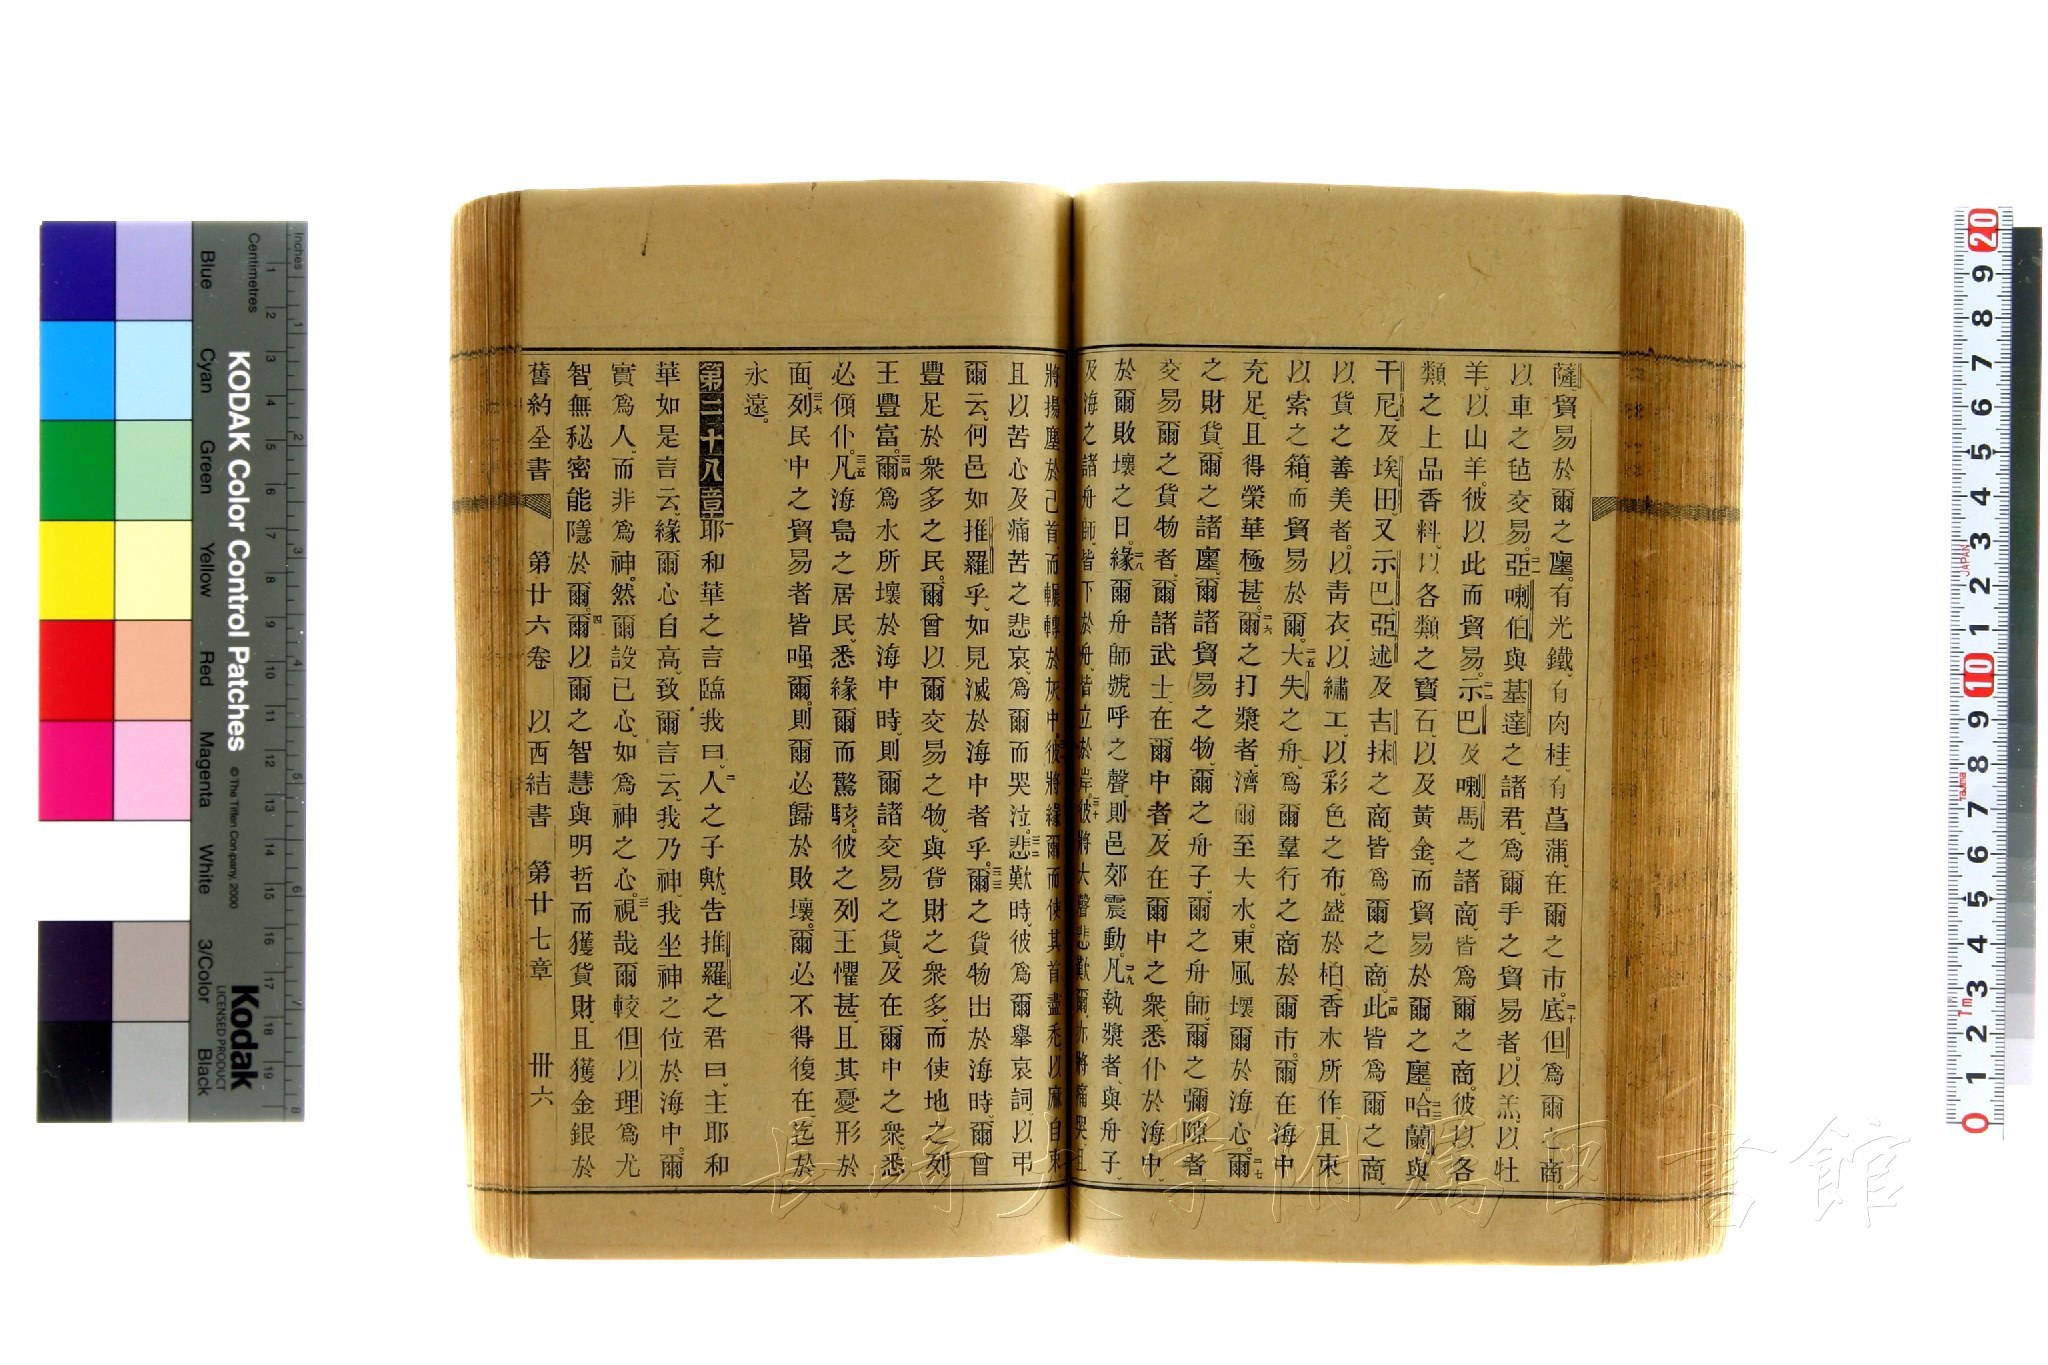 薩貿易於爾之廛。有光鐵、有肉桂、有菖蒲、在爾之市。二十底但爲爾之商。
以車之毡交易。二一亞喇伯與基達之諸君、爲爾手之貿易者。以羔、以牡
羊、以山羊。彼以此而貿易。二二示巴及喇馬之諸商、皆爲爾之商。彼以各
類之上品香料、以各類之寶石、以及黃金、而貿易於爾之廛。二三哈蘭與
干尼、及埃田、又示巴、亞述及吉抹之商、皆爲爾之商。二四此皆爲爾之商、
以貨之善美者、以青衣、以繡工、以彩色之布、盛於柏香木所作、且束
以索之箱、而貿易於爾。二五大失之舟、爲爾羣行之商於爾市。爾在海中
充足、且得榮華極甚。二六爾之打槳者、濟爾至大水。東風壞爾於海心。二七爾
之財貨、爾之諸廛、爾諸貿易之物、爾之舟子、爾之舟師、爾之彌隙者、
交易爾之貨物者、爾諸武士、在爾中者、及在爾中之衆、悉仆於海中、
於爾敗壞之日。二八緣爾舟師號呼之聲、則邑郊震動。二九凡執槳者、與舟子、
及海之諸舟師、皆下於舟、皆立於岸。三十彼將大聲悲歎爾、亦將痛哭、且
將揚塵於己首、而輾轉於灰中。彼將緣爾而使其首盡禿、以麻自束、
且以苦心及痛苦之悲哀、爲爾而哭泣。三二悲歎時、彼爲爾擧哀詞、以弔
爾云、何邑如推羅乎、如見滅於海中者乎。三三爾之貨物出於海時、爾曾
豐足於衆多之民。爾曾以爾交易之物、與貨財之衆多、而使地之列
王豐富。三四爾爲水所壞於海中時、則爾諸交易之貨、及在爾中之衆、悉
必傾仆。三五凡海島之居民、悉緣爾而驚駭。彼之列王懼甚、且其憂形於
面。三六列民中之貿易者皆嗤爾。則爾必歸於敗壞。爾必不得復在、迄於
永遠。
第二十八章一耶和華之言臨我曰、二人之子歟、告推羅之君曰、主耶和
華如是言云、緣爾心自高、致爾言云、我乃神、我坐神之位於海中。爾
實爲人、而非爲神。然爾設己心、如爲神之心。三視哉、爾較但以理爲尤
智、無秘密能隱於爾。四爾以爾之智慧與明哲而獲貨財、且獲金銀於
舊約全書 第廿六卷 以西結書 第廿七章 卅六
KODAK Color Control Patches
© The Tiffen Company, 2000
Kodak
LICENSED PRODUCT
Inches
Centimetres
Blue Cyan Green Yellow Red Magenta White 3/Color Black
1 2 3 4 5 6 7 8 9 10 11 12 13 14 15 16 17 18 19
1 2 3 4 5 6 7 8
20 9 8 7 6 5 4 3 2 1 10 9 8 7 6 5 4 3 2 1 0
JAPAN
Tajima
Tm
長崎大学附属図書館